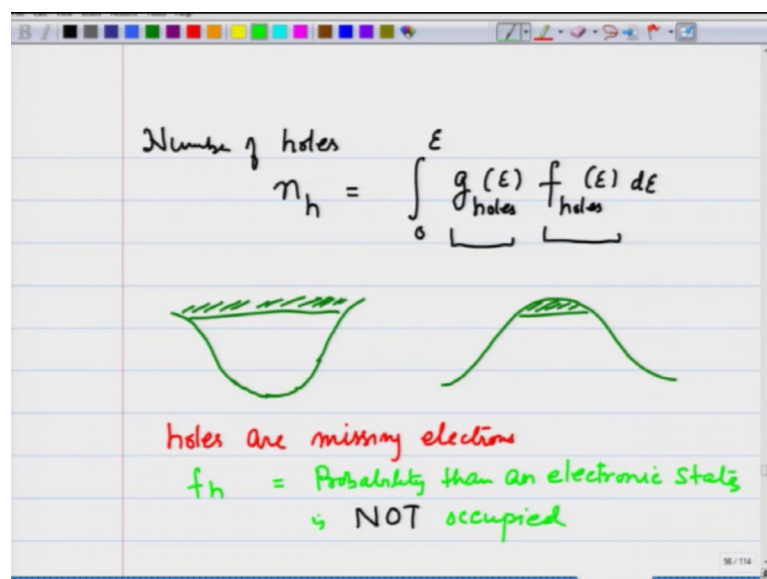 Number of holes
n_h = ∫_0^ε g_holes (ε) f_holes (ε) dε
holes are missing electrons
f_h = Probability than an electronic states
is NOT occupied
96 / 114